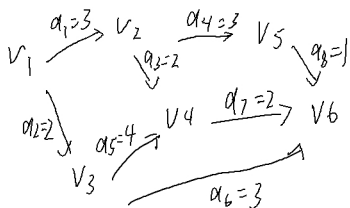 a₁=3 V₂ a₄=3 V₅
V₁ a₃=2 a₈=1
a₂=2 a₅=4 V4 a₇=2 V6
V₃
a₆=3